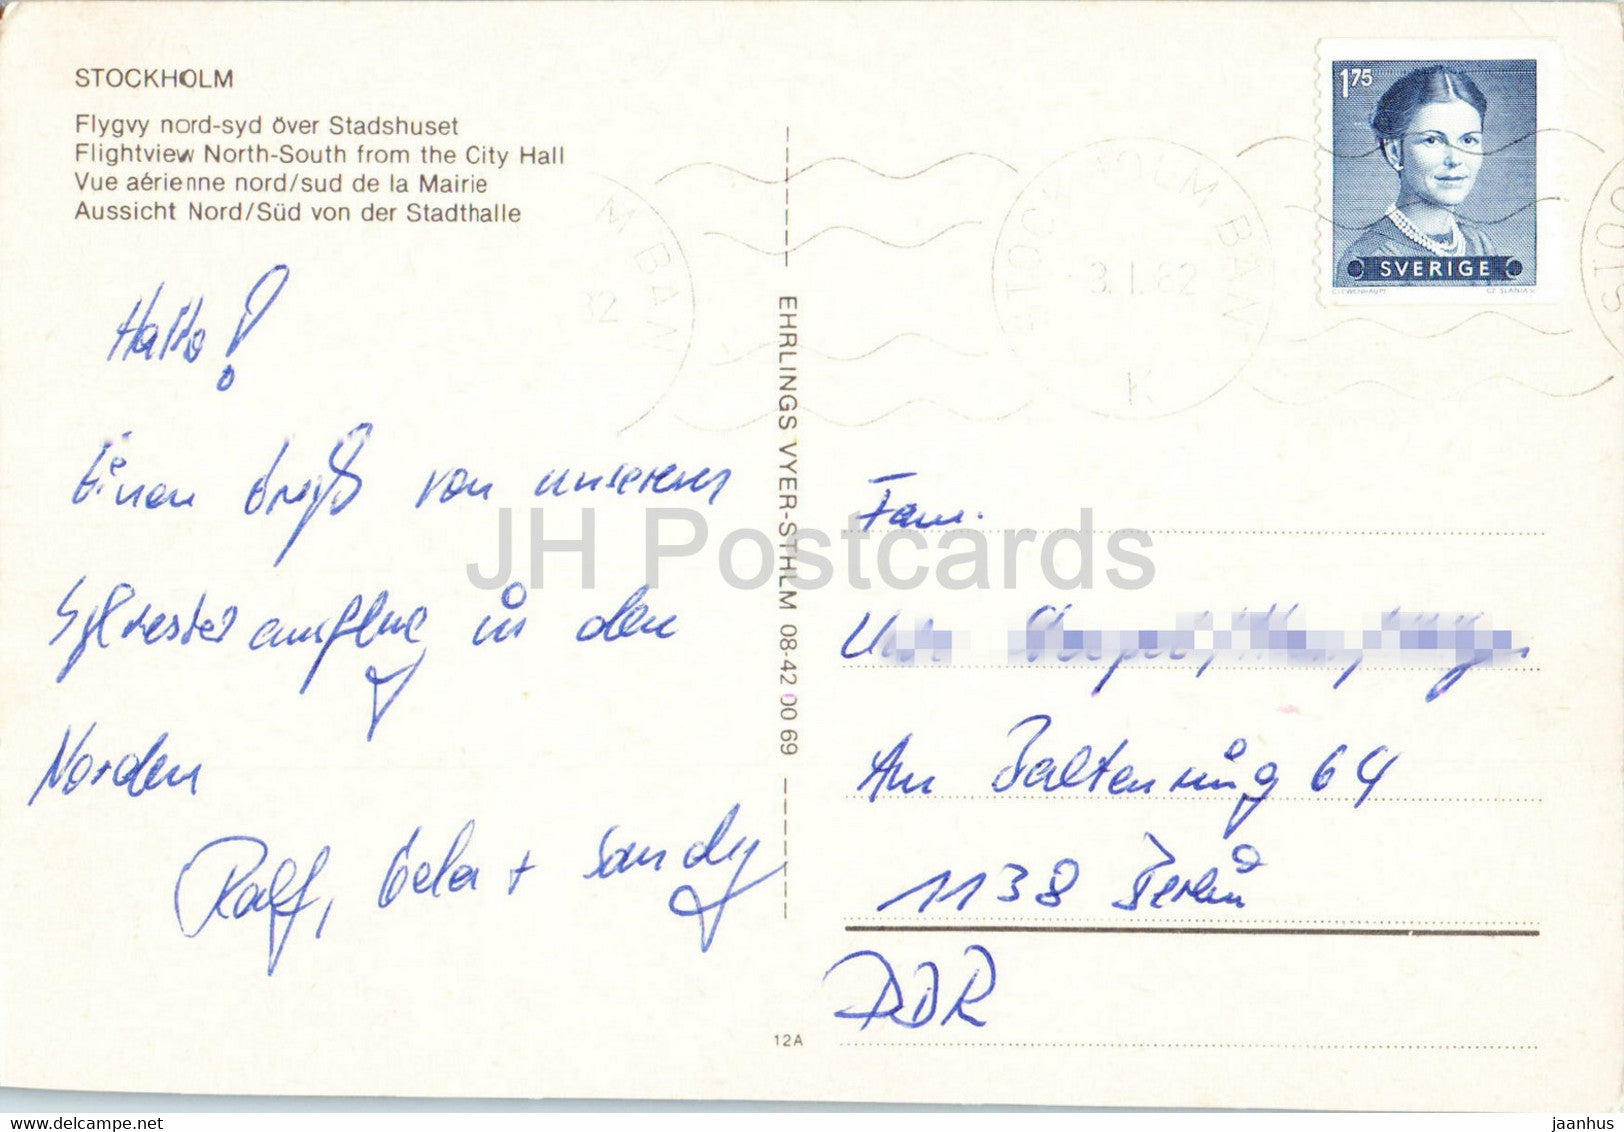 STOCKHOLM
Flygvy nord-syd över Stadshuset
Flightview North-South from the City Hall
Vue aérienne nord/sud de la Mairie
Aussicht Nord/Süd von der Stadthalle
Hallo!
Einen Gruß von unserem
Sylvesterausflug in den
Norden
Ralf, Gela + Sandy
EHRLINGS VYER-STHLM 08-42 00 69
12A
1.75
SVERIGE
CZ SLANIA
STOCKHOLM BAN
3.1.82
K
82
M BAN
Fam.
Am Falkenring 64
1138 Berlin
DDR
JH Postcards
www.delcampe.net
jaanhus